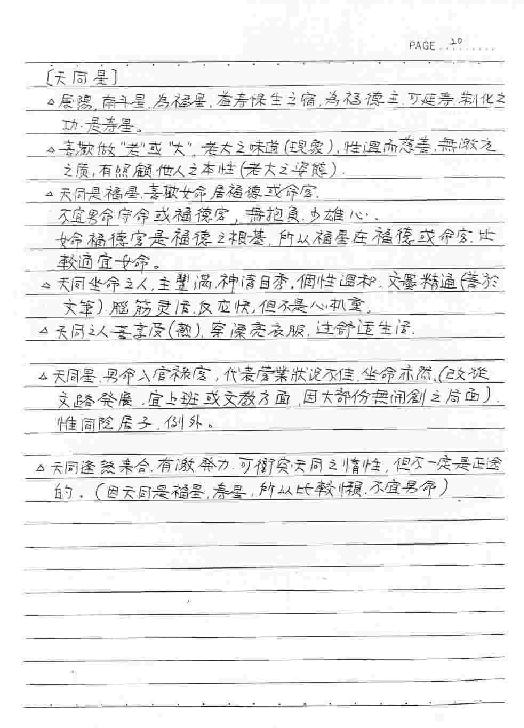 PAGE 20
[天同星]
△屬陽,南斗星,為福星,益壽保生之宿,為福德主,可延壽,制化之
功,是壽星。
△喜歡做"老"或"大",老大之味道(現象),性溫而慈善,無激亢
之質,有照顧他人之本性(老大之姿態)。
△天同是福星,喜歡女命居福德或命宮
不宜男命守命或福德宮,無抱負,少雄心。
女命福德宮是福德之根基,所以福星在福德或命宮,比
較適宜女命。
△天同坐命之人,主豐滿,神清目秀,個性溫和,文墨精通(善於
文筆)腦筋灵活,反应快,但不是心机重。
△天同之人喜享受(熱),穿漂亮衣服,过舒适生活
△天同星,男命入官祿宮,代表营業狀况不佳,坐命亦然,(改從
文路發展,宜上班或文教方面,因大部份無開創之局面),
惟同陰居子,例外。
△天同逢煞來合,有激發力,可衝突天同之惰性,但不一定是正途
的。(因天同是福星,壽星,所以比較懶,不宜男命)